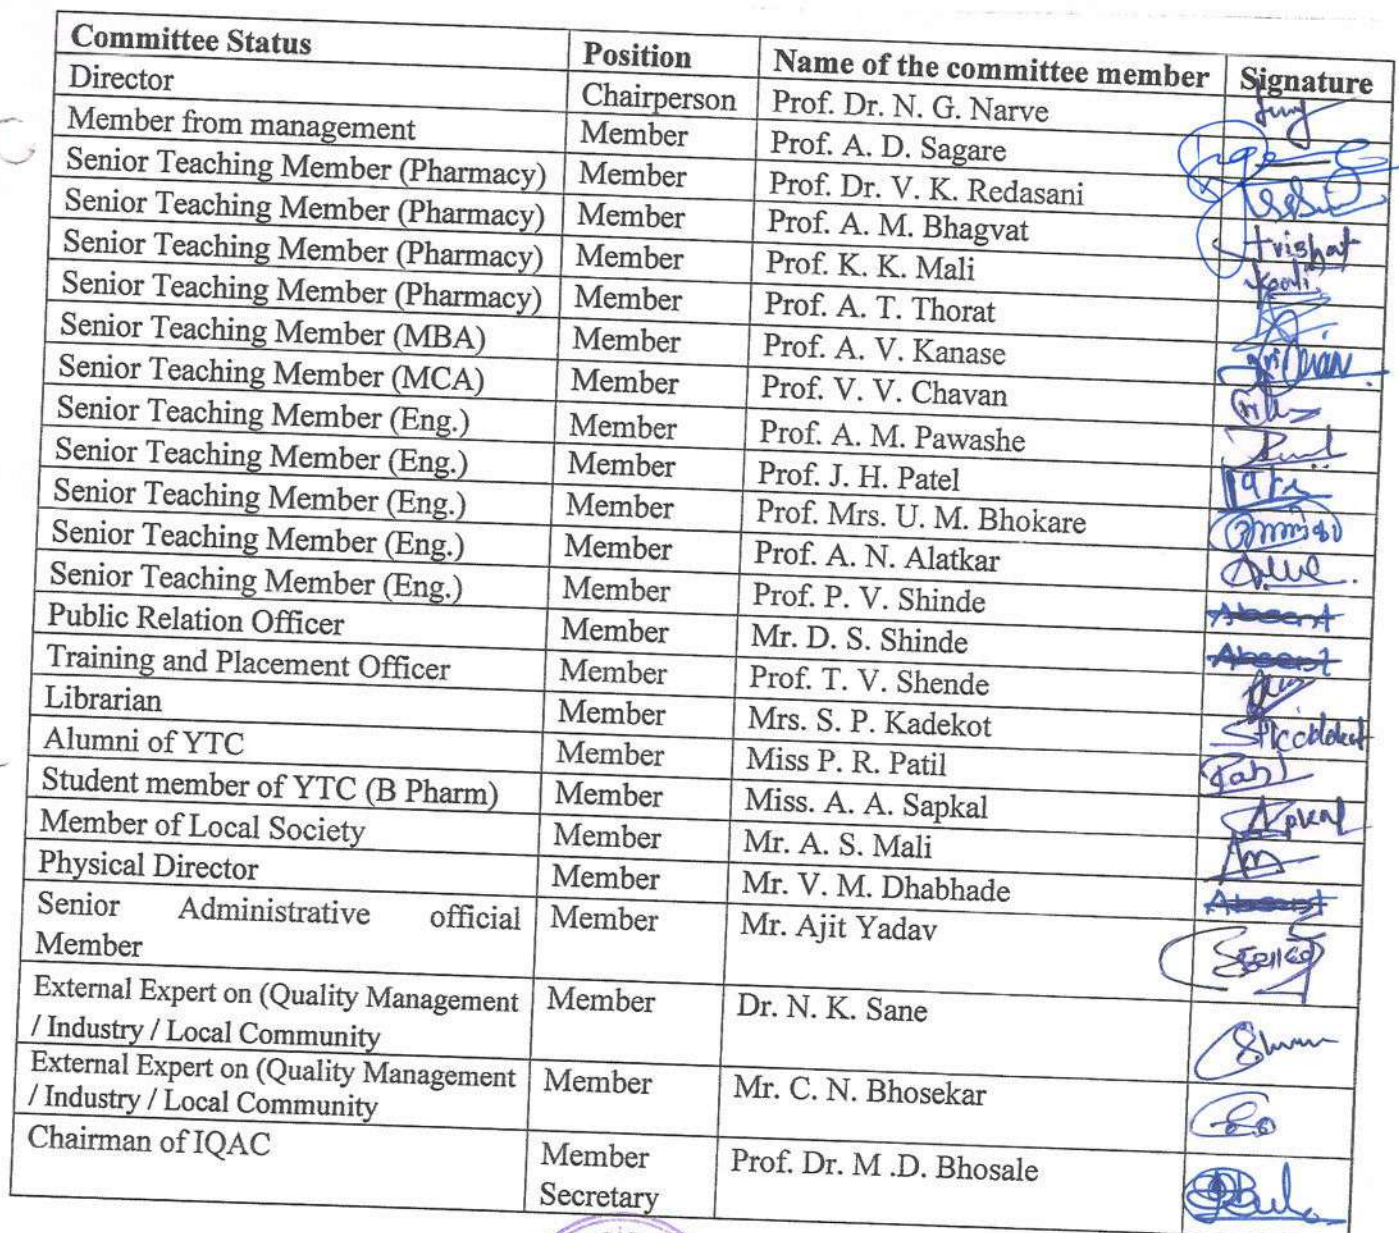 Committee Status Position Name of the committee member Signature
Director Chairperson Prof. Dr. N. G. Narve
Member from management Member Prof. A. D. Sagare
Senior Teaching Member (Pharmacy) Member Prof. Dr. V. K. Redasani
Senior Teaching Member (Pharmacy) Member Prof. A. M. Bhagvat
Senior Teaching Member (Pharmacy) Member Prof. K. K. Mali
Senior Teaching Member (Pharmacy) Member Prof. A. T. Thorat
Senior Teaching Member (MBA) Member Prof. A. V. Kanase
Senior Teaching Member (MCA) Member Prof. V. V. Chavan
Senior Teaching Member (Eng.) Member Prof. A. M. Pawashe
Senior Teaching Member (Eng.) Member Prof. J. H. Patel
Senior Teaching Member (Eng.) Member Prof. Mrs. U. M. Bhokare
Senior Teaching Member (Eng.) Member Prof. A. N. Alatkar
Senior Teaching Member (Eng.) Member Prof. P. V. Shinde Absent
Public Relation Officer Member Mr. D. S. Shinde Absent
Training and Placement Officer Member Prof. T. V. Shende
Librarian Member Mrs. S. P. Kadekot
Alumni of YTC Member Miss P. R. Patil
Student member of YTC (B Pharm) Member Miss. A. A. Sapkal
Member of Local Society Member Mr. A. S. Mali
Physical Director Member Mr. V. M. Dhabhade Absent
Senior Administrative official Member Mr. Ajit Yadav
Member
External Expert on (Quality Management Member Dr. N. K. Sane
/ Industry / Local Community
External Expert on (Quality Management Member Mr. C. N. Bhosekar
/ Industry / Local Community
Chairman of IQAC Member Prof. Dr. M .D. Bhosale
Secretary